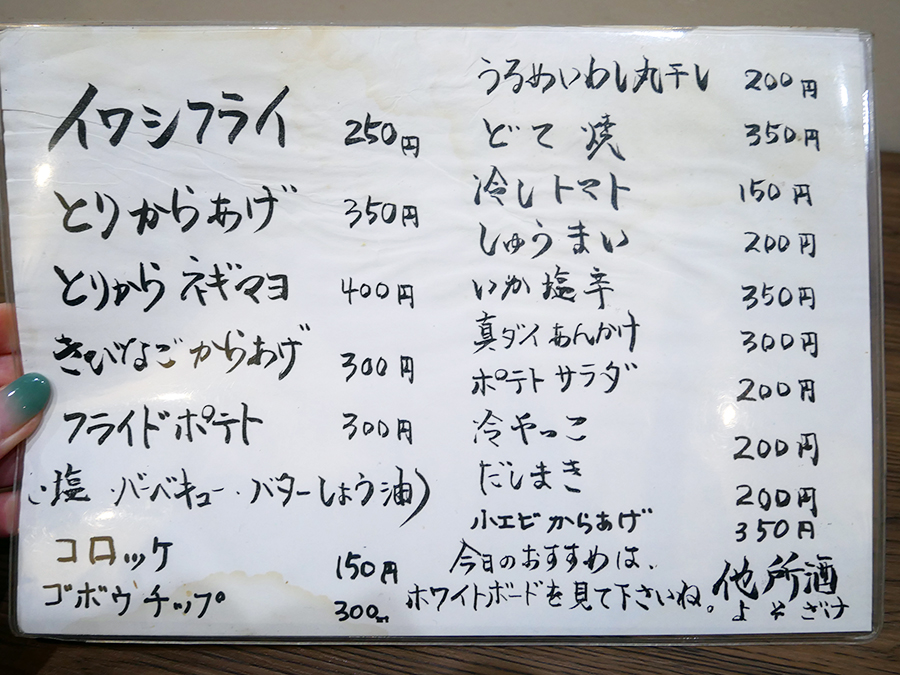 イワシフライ 250円
とりからあげ 350円
とりからネギマヨ 400円
きびなごからあげ 300円
フライドポテト 300円
塩・バーベキュー・バターしょう油)
コロッケ 150円
ゴボウチップ 300円
うるめいわし丸干し 200円
どて焼 350円
冷しトマト 150円
しゅうまい 200円
いか塩辛 350円
真ダイあんかけ 300円
ポテトサラダ 200円
冷やっこ 200円
だしまき 200円
小エビからあげ 350円
今日のおすすめは、
ホワイトボードを見て下さいね。
他所酒
よそざけ